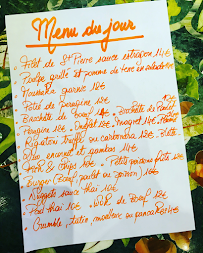 Menu du jour
Filet de St Pierre sauce estragon 14€
Poulpe grillé et pomme de terre en salade 14€
Moussaka garnie 12€
Filet de Perugine 12€
Brochette de boeuf 14€ Brochette de Poulet
Perugine 12€ Onglet 12€ Magret 14€
Rigatoni truffe ou carbonara 12€
encornet et gambas 14€
Fish & Chips 12€ Petits poissons frits 12€
Burger Boeuf, poulet ou poisson 16€
Nuggets sauce thaï 12€
Pad thaï 15€ Wok de Boeuf 12€
Crumble, tatin, moelleux ou panacotta 4€